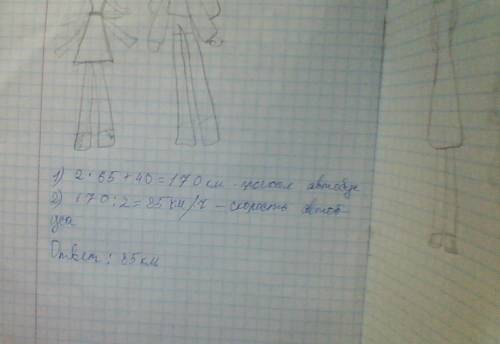 1) 2·65+40=170 км - проехал автобус
2) 170:2=85 км/ч - скорость автоб
уса
Ответ: 85 км